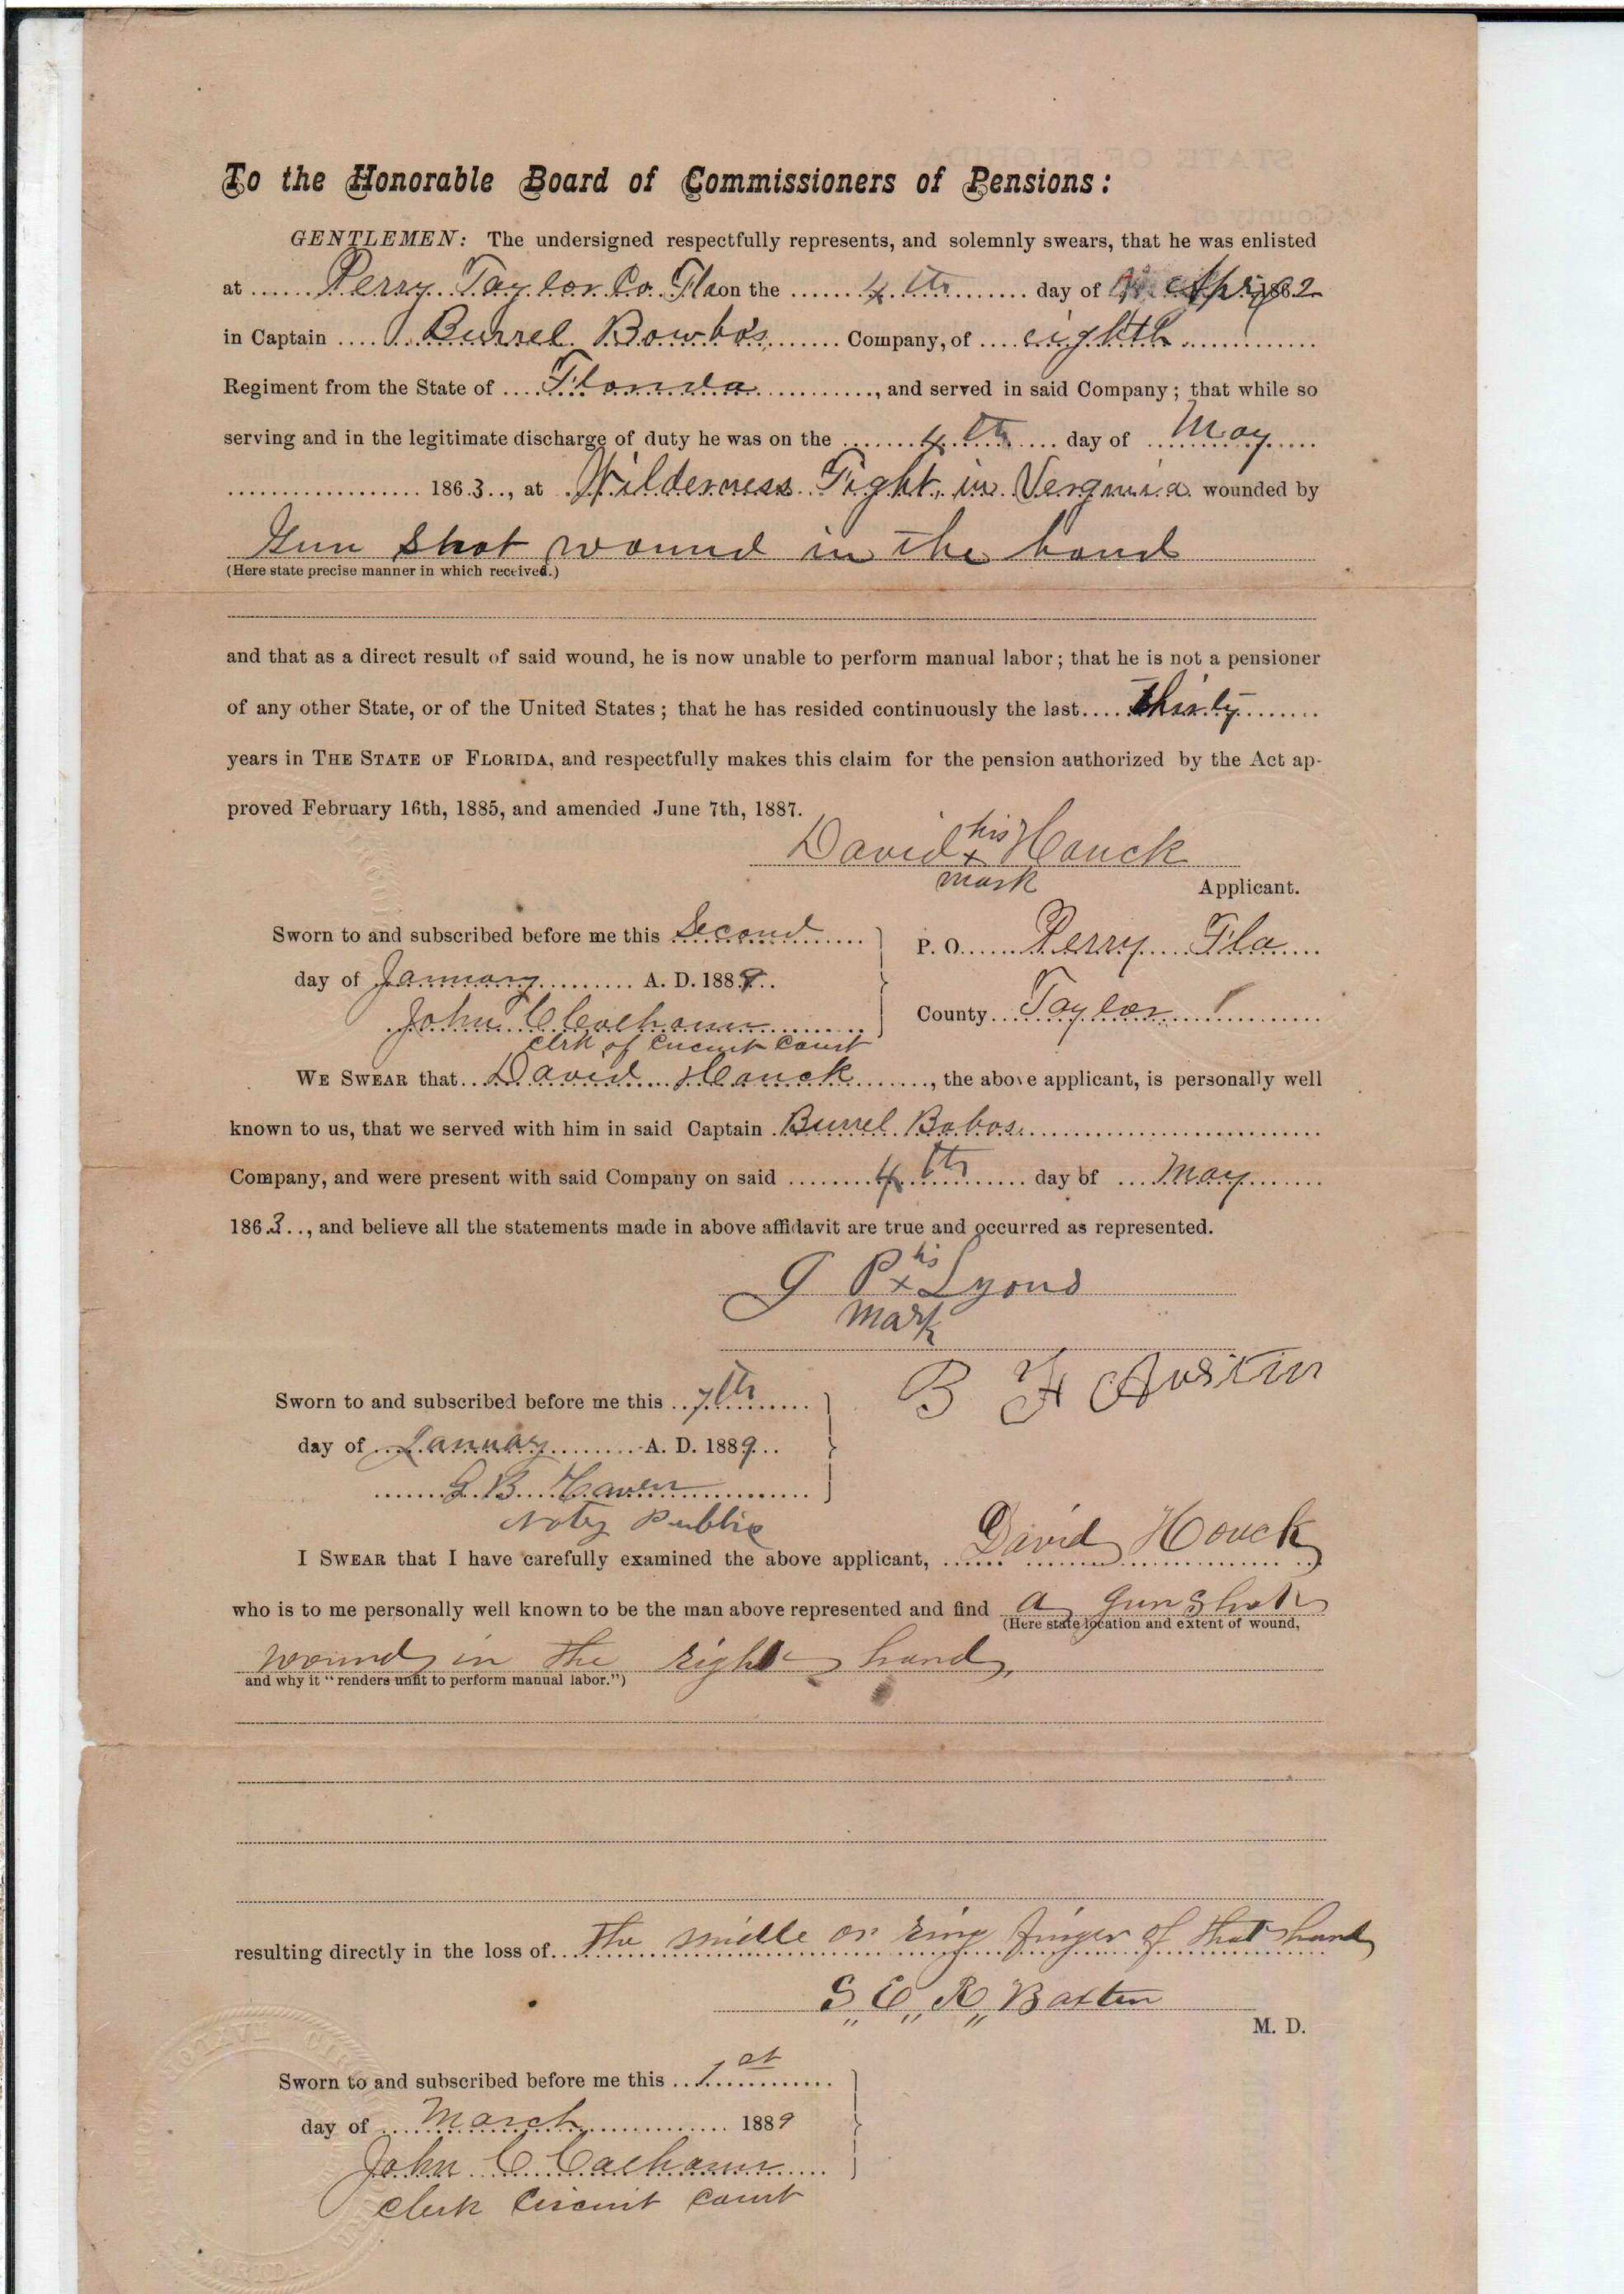 To the Honorable Board of Commissioners of Pensions:
GENTLEMEN: The undersigned respectfully represents, and solemnly swears, that he was enlisted
at Perry Taylor Co. Fla on the 4th day of April 1862
in Captain Burrel Bowbos Company, of eighth
Regiment from the State of Florida, and served in said Company; that while so
serving and in the legitimate discharge of duty he was on the 4th day of May
1863, at Wilderness Fight in Verginia wounded by
Gun Shot wound in the hand
(Here state precise manner in which received.)
and that as a direct result of said wound, he is now unable to perform manual labor; that he is not a pensioner
of any other State, or of the United States; that he has resided continuously the last thirty
years in THE STATE OF FLORIDA, and respectfully makes this claim for the pension authorized by the Act ap-
proved February 16th, 1885, and amended June 7th, 1887.
David his x Houck
mark
Applicant.
Sworn to and subscribed before me this Second
P. O. Perry Fla
day of January A. D. 1889
John C Calhoun
County Taylor
Clrk of Circuit Court
WE SWEAR that David Houck, the above applicant, is personally well
known to us, that we served with him in said Captain Burrel Bobos
Company, and were present with said Company on said 4th day of May
1863, and believe all the statements made in above affidavit are true and occurred as represented.
G P his x Lyons
mark
B F Austin
Sworn to and subscribed before me this 7th
day of January A. D. 1889
Noty Public
I SWEAR that I have carefully examined the above applicant, David Houck
who is to me personally well known to be the man above represented and find a gun shot
(Here state location and extent of wound,
wound in the right hand,
and why it "renders unfit to perform manual labor.")
resulting directly in the loss of the midle or ring finger of that hand
S E R
M. D.
Sworn to and subscribed before me this 1st
day of March 1889
John C Calhoun
Clerk Circuit Court